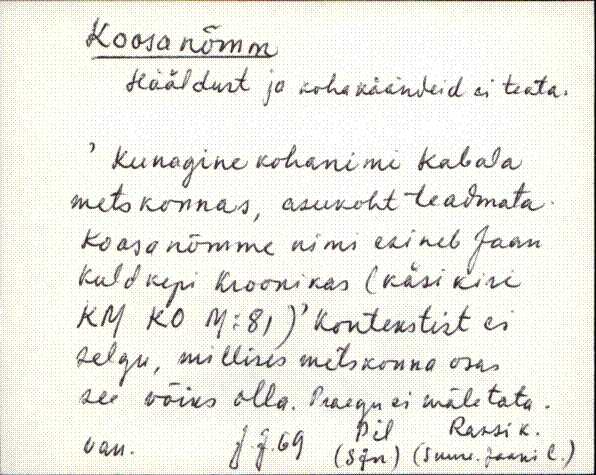 Koosa nõmm
Hääldust ja kohakäändeid ei teata.
' Kunagine kohanimi Kabala
metskonnas, asukoht teadmata.
Koosa nõmme nimi esineb Jaan
Kuldkepi Kroonikas (käsikiri
KM KO M:8,)' Kontekstist ei
selgu, millises metskonna osas
see võiks olla. Praegu ei mäletata.
van. J.J.69 Pil Rassi k.
(SJn) (Suure-Jaani l.)